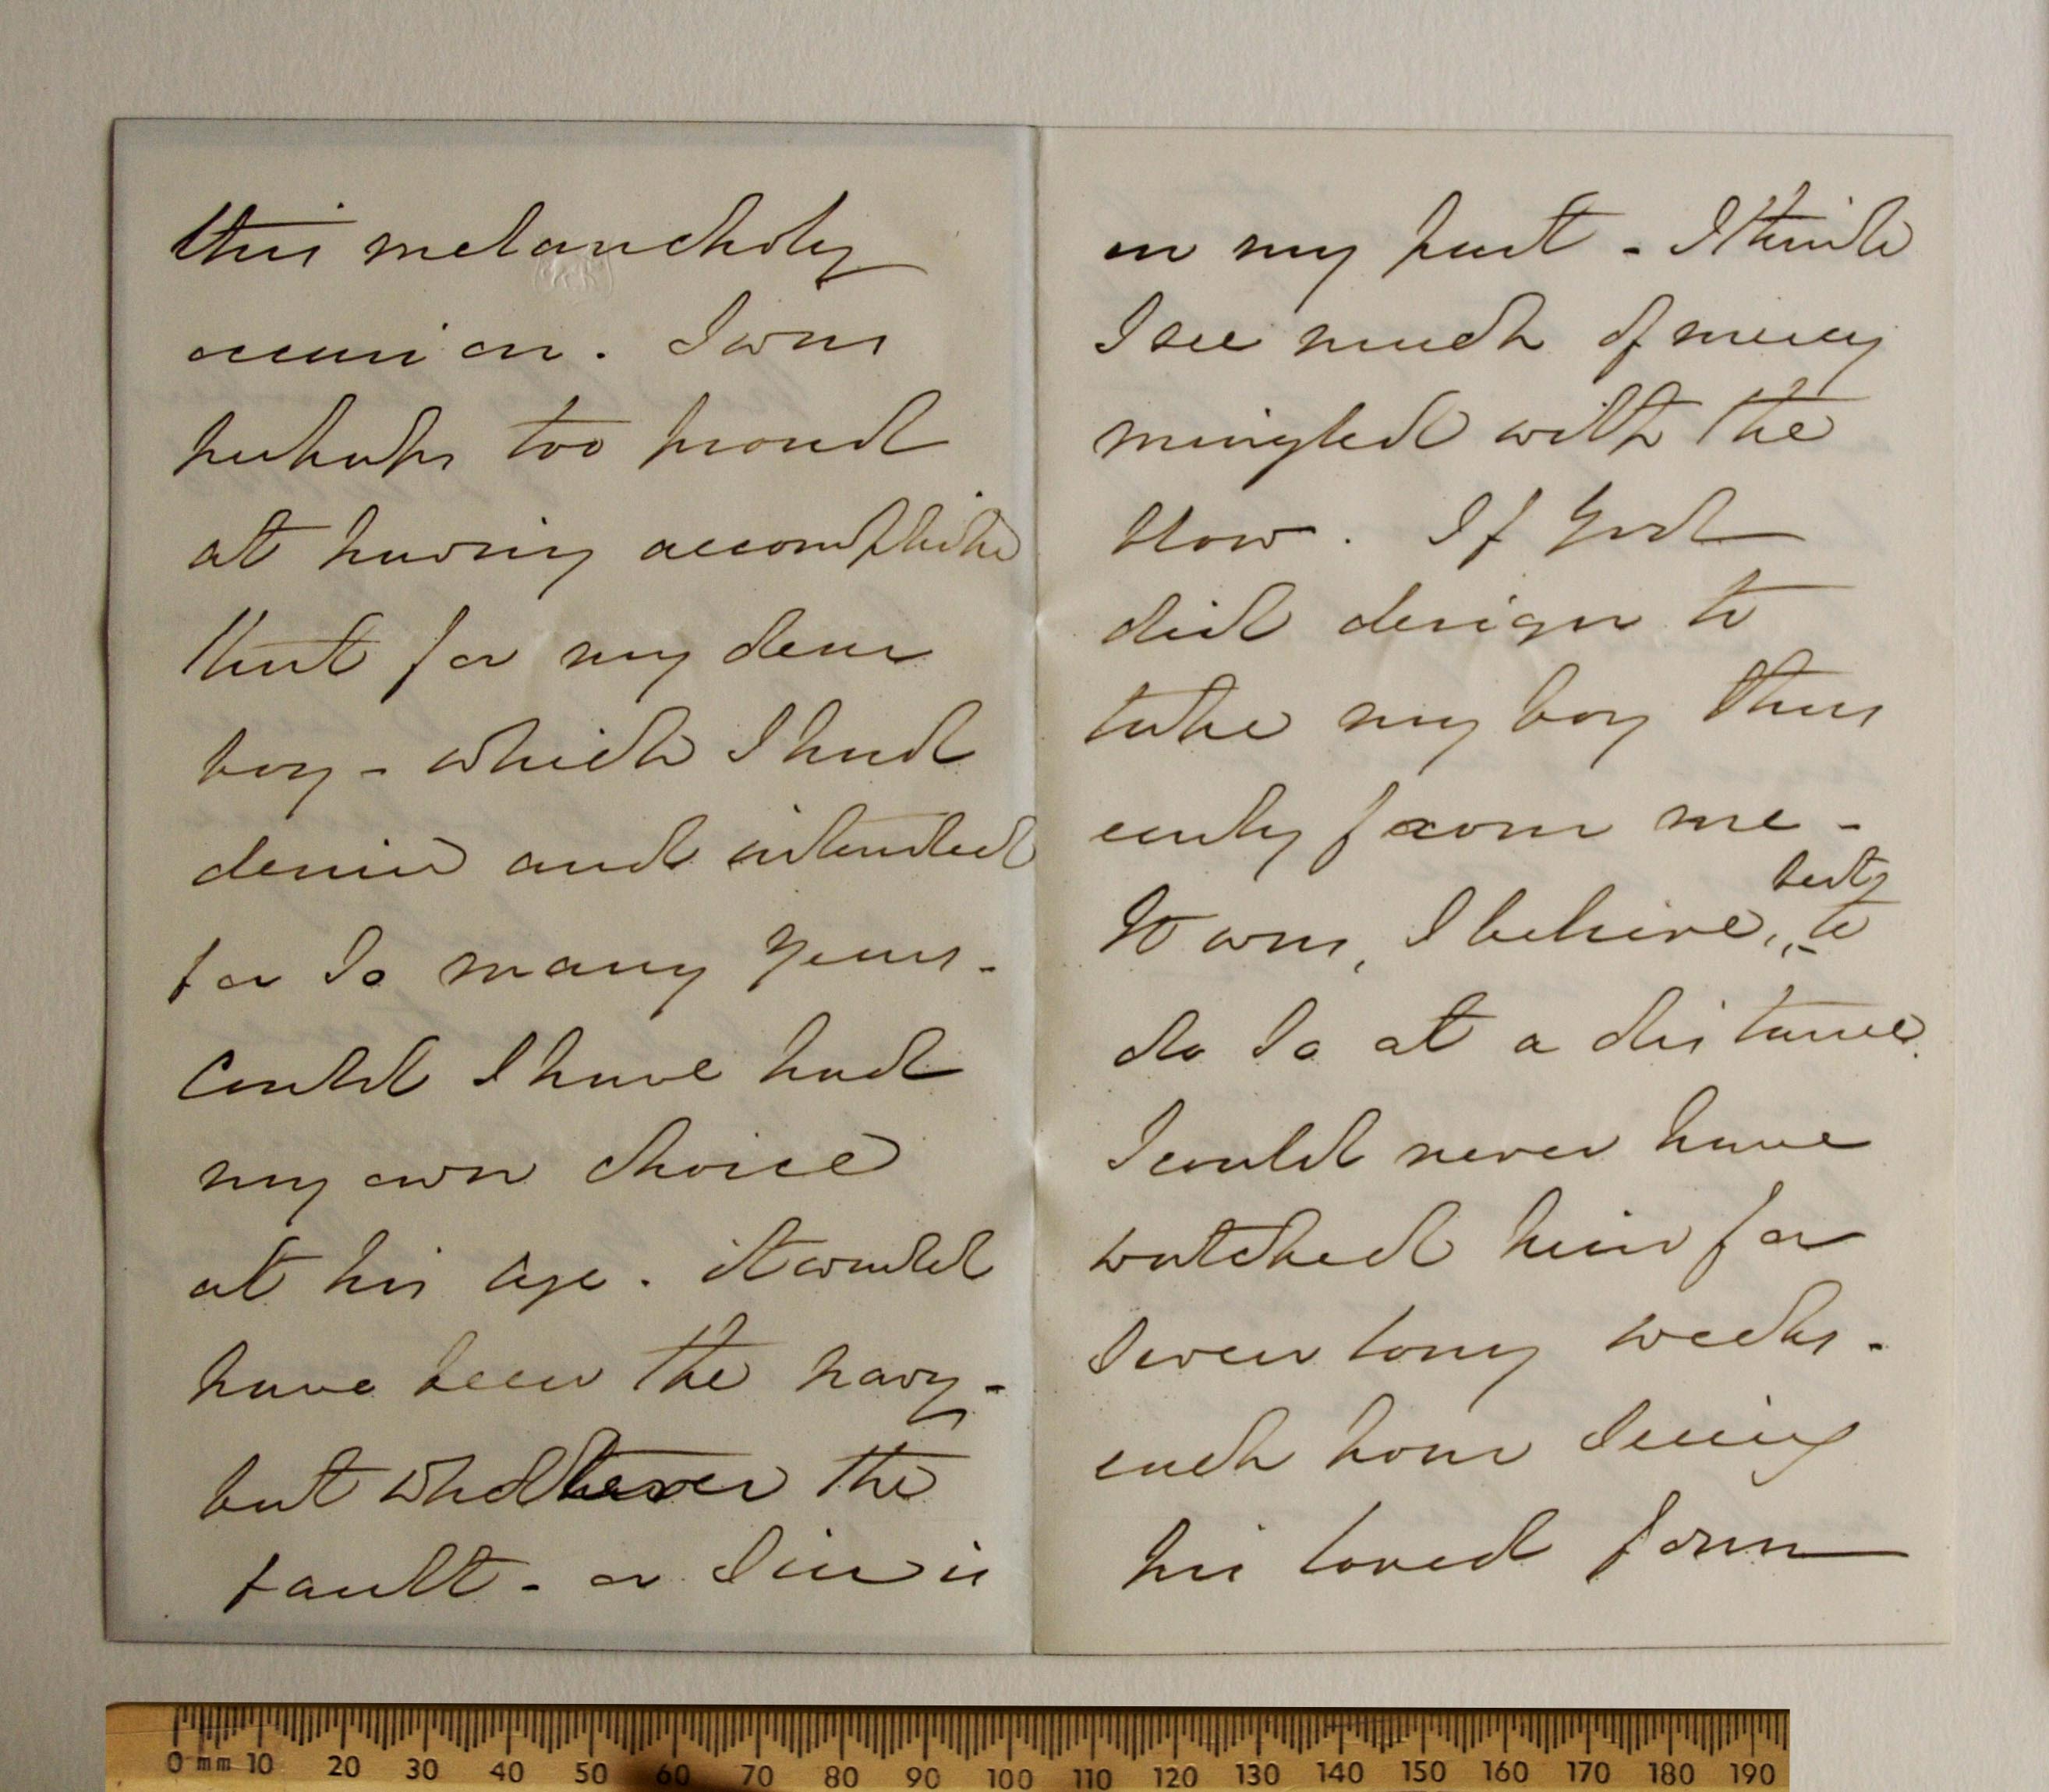 this melancholy
occasion. I was
perhaps too proud
at having accomplished
that for my dear
boy - which I had
desired and intended
for so many years -
Could I have had
my own choice
at his age. it would
have been the navy -
but whatever the
fault - or sin is
on my part - I think
I see much of mercy
mingled with the
blow. If God
did design to
take my boy thus
early from me -
best,
It was, I believe, to
do so at a distance.
I could never have
watched him for
seven long weeks -
each hour seeing
his loved form
0 mm 10 20 30 40 50 60 70 80 90 100 110 120 130 140 150 160 170 180 190